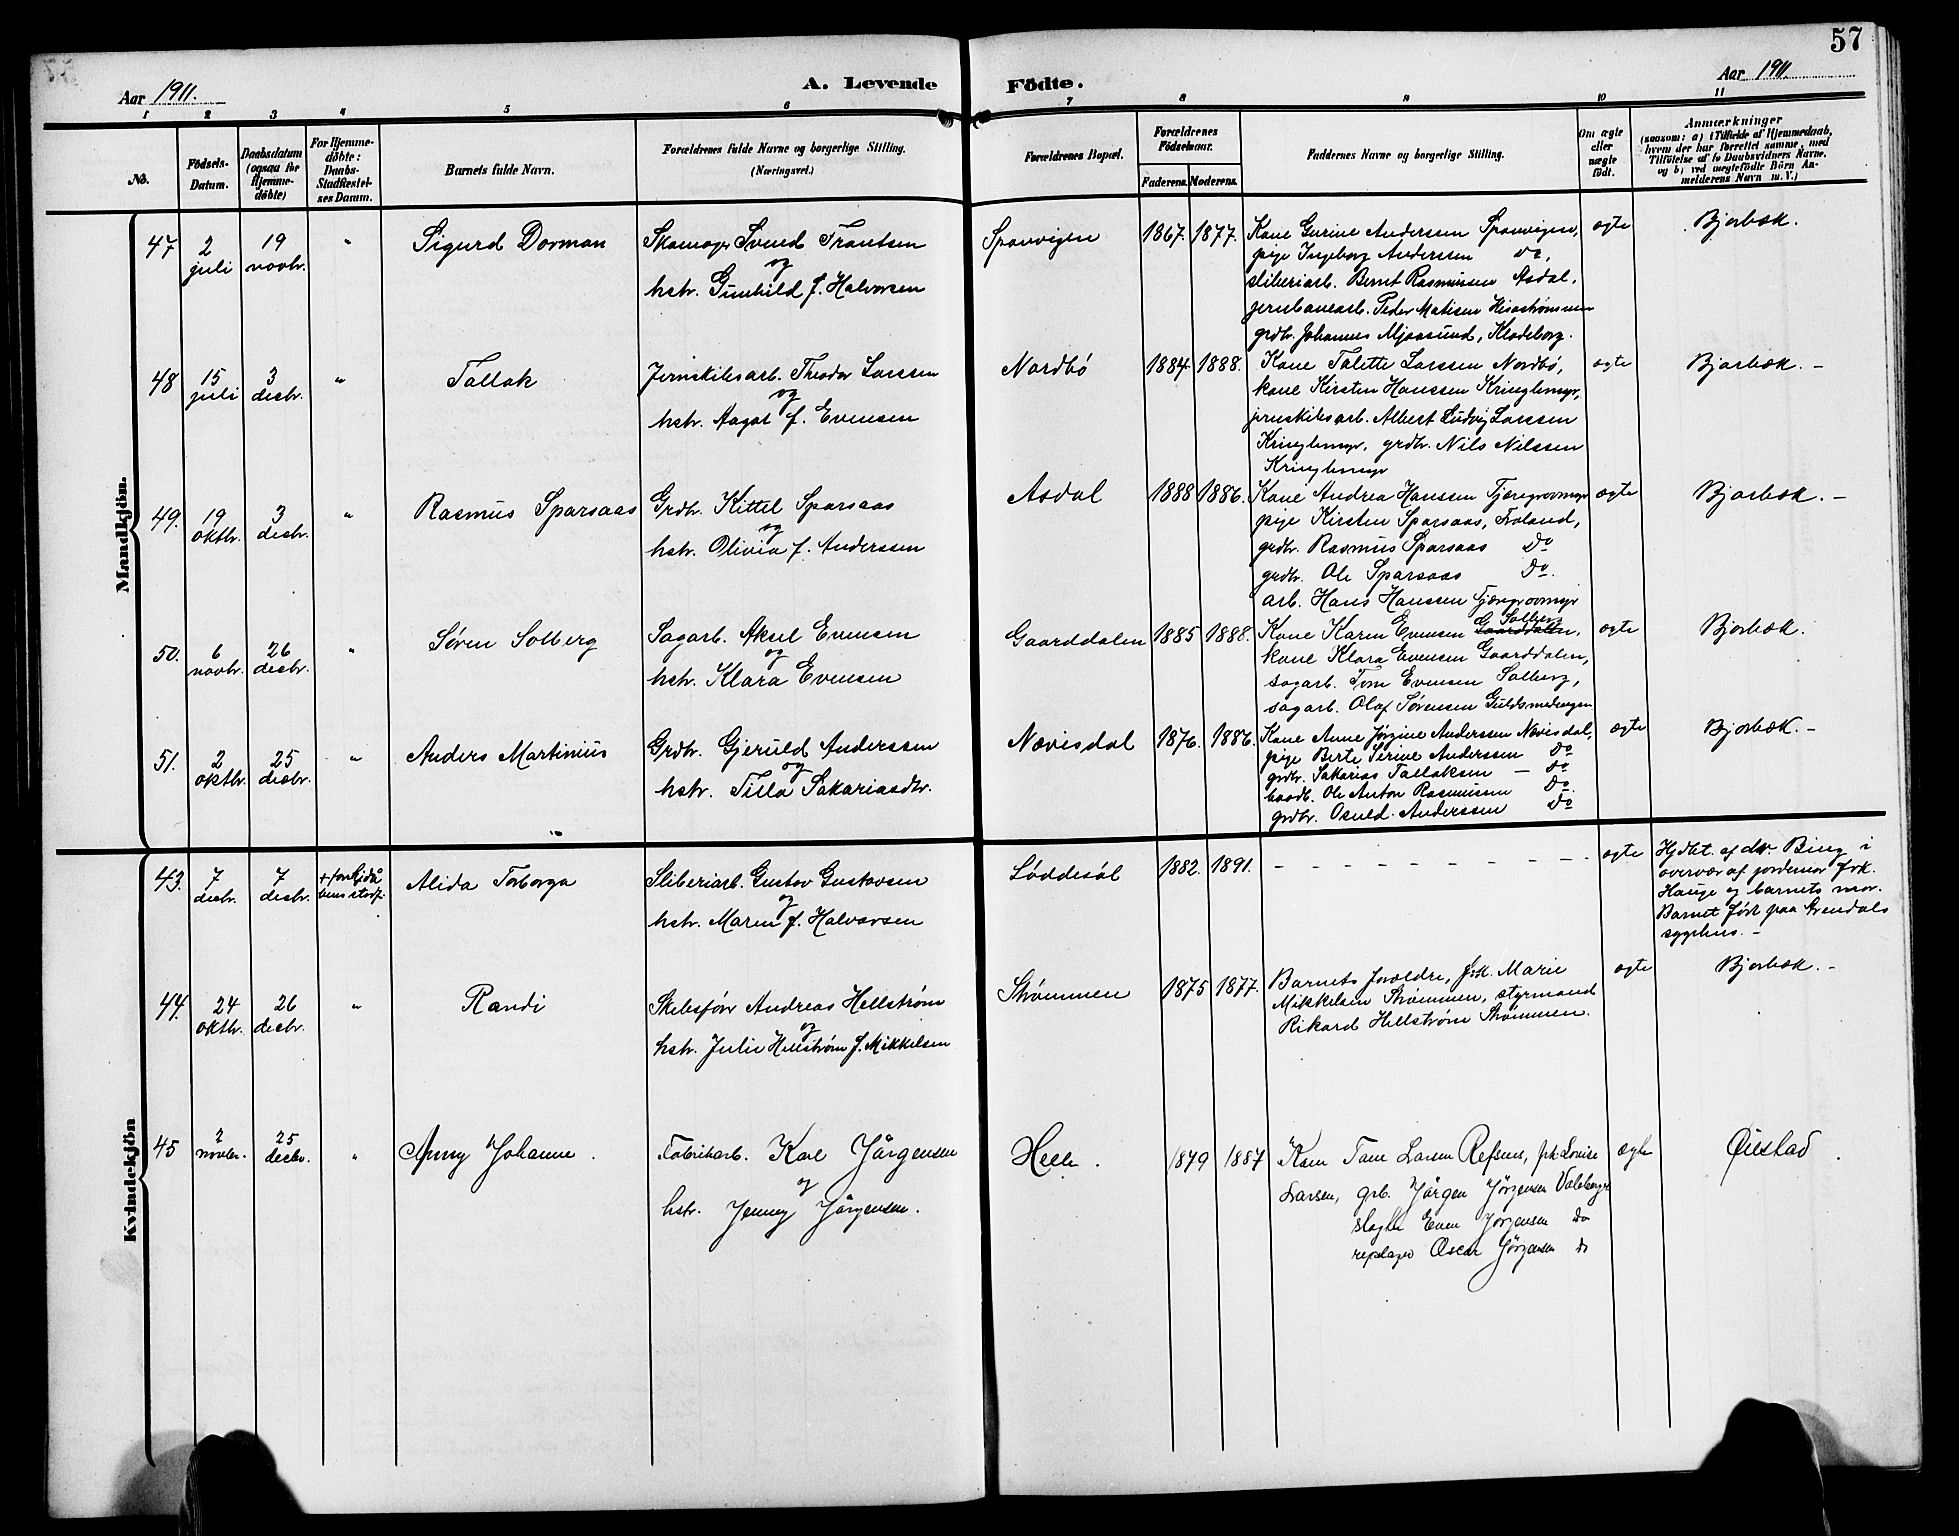 57
Aar 1911.
A. Levende
Födte.
Aar 1911.
1 2 3 4 5 6 7 8 9 10 11
No.
Födsels-
Datum.
Daabsdatum
(ogsaa for
Hjemme-
döbte)
For Hjemme-
döbte:
Daabs-
Stadfæstel-
ses Datum.
Barnets fulde Navn.
Forældrenes fulde Navne og borgerlige Stilling.
(Næringsvei.)
Forældrenes Bopæl.
Forældrenes
Födselsaar.
Faderens. Moderens.
Faddernes Navne og borgerlige Stilling.
Om ægte
eller
uægte
födt.
Anmærkninger
(saasom: a) i Tilfælde af Hjemmedaab,
hvem der har forrettet samme, med
Tilföielse af to Daabsvidners Navne,
og b) ved uægtefödte Börn An-
melderens Navn m. V.)
Mandkjön.
47 2 juli 19 novbr. " Sigurd Dorman
Skomager Svend Frantsen
og
hstr. Gunhild f. Halvorsen
Sponvigen 1867. 1877.
Kone Gurine Anderssen Sponvigen,
pige Ingeborg Anderssen do,
sliberiarb. Bernt Rasmussen Asdal,
jernbanearb. Peder Matisen Hisestrømmen
grdbr. Johannes Mjaasund, Klodeborg.
ægte Bjorbæk.
48 15 juli 3 desbr. " Tallak
Jernskibsarb. Theodor Larssen
og
hstr. Aagot f. Evensen
Nordbö 1884. 1888.
Kone Talette Larssen Nordbö,
kone Kirsten Hanssen Kringlemyr,
jernskibsarb. Albert Ludvig Larssen
Kringlemyr, grdbr. Nils Nilssen
Kringlemyr
ægte Bjorbæk. -
49. 19 oktbr. 3 desbr. " Rasmus Sparsaas
Grdbr. Kittel Sparsaas
og
hstr. Olivia f. Anderssen
Asdal 1888 1886.
Kone Andrea Hanssen Tjæregrovmyr
pige Kirsten Sparsaas, Froland,
grdbr. Rasmus Sparsaas Do
grdbr. Ole Sparsaas Do.
arb. Hans Hanssen Tjæregrovmyr
ægte Bjorbæk. -
50. 6 novbr. 26 desbr. " Søren Solberg
Sagarb. Aksel Evensen
og
hstr. Klara Evensen
Gaarddalen 1885 1888.
Solberg
Kone Karen Evensen Gaarddalen,
kone Klara Evensen Gaarddalen,
sagarb. Tom Evensen Solberg,
sagarb. Olaf Sørensen Guldsmedengen
ægte Bjorbæk.
51. 2 oktbr. 25 desbr. " Anders Martinius
Grdbr. Gjeruld Anderssen
og
hstr. Tilla Sakariasdtr.
Nævisdal 1876. 1886.
Kone Anne Jørgine Anderssen Nævisdal,
pige Berte Serine Anderssen Do
grdbr. Sakarias Tallaksen - Do
Ole Anton Rasmussen Do
grdbr. Osuld Anderssen Do
ægte Bjorbæk. -
Kvindekjön
43. 7 desbr. 7 desbr. Alida Torborga
Sliberiarb. Gustav Gustavsen
og
hstr. Maren f. Halvorsen
Løddesöl 1882. 1891.
ægte
Hjdbt. af dr. Bing i
overvær af jordemor frk.
Hauge og barnets mor.
Barnet født paa Arendals
sygehus. -
44. 24 oktbr. 26 desbr. " Randi
Skibsfør Andreas Hellstrøm
og
hstr. Julie Hellstrøm f. Mikkelsen
Strømmen 1875 1877.
Barnets forældre, frk. Marie
Mikkelsen Strømmen, styrmand
Rikard Hellstrøm Strømmen.
ægte Bjorbæk. -
45 2 novbr. 25 desbr. " Anny Johanne.
Fabrikarb. Karl Jörgensen
og
hstr. Jenny Jörgensen.
Helle. 1879 1887
Kone Tane Larsen Refsnes, frk. Lovise
Larsen, grb. Jörgen Jörgensen
slagter Even Jörgensen do
repslager Oscar Jörgensen do
ægte Øiestad